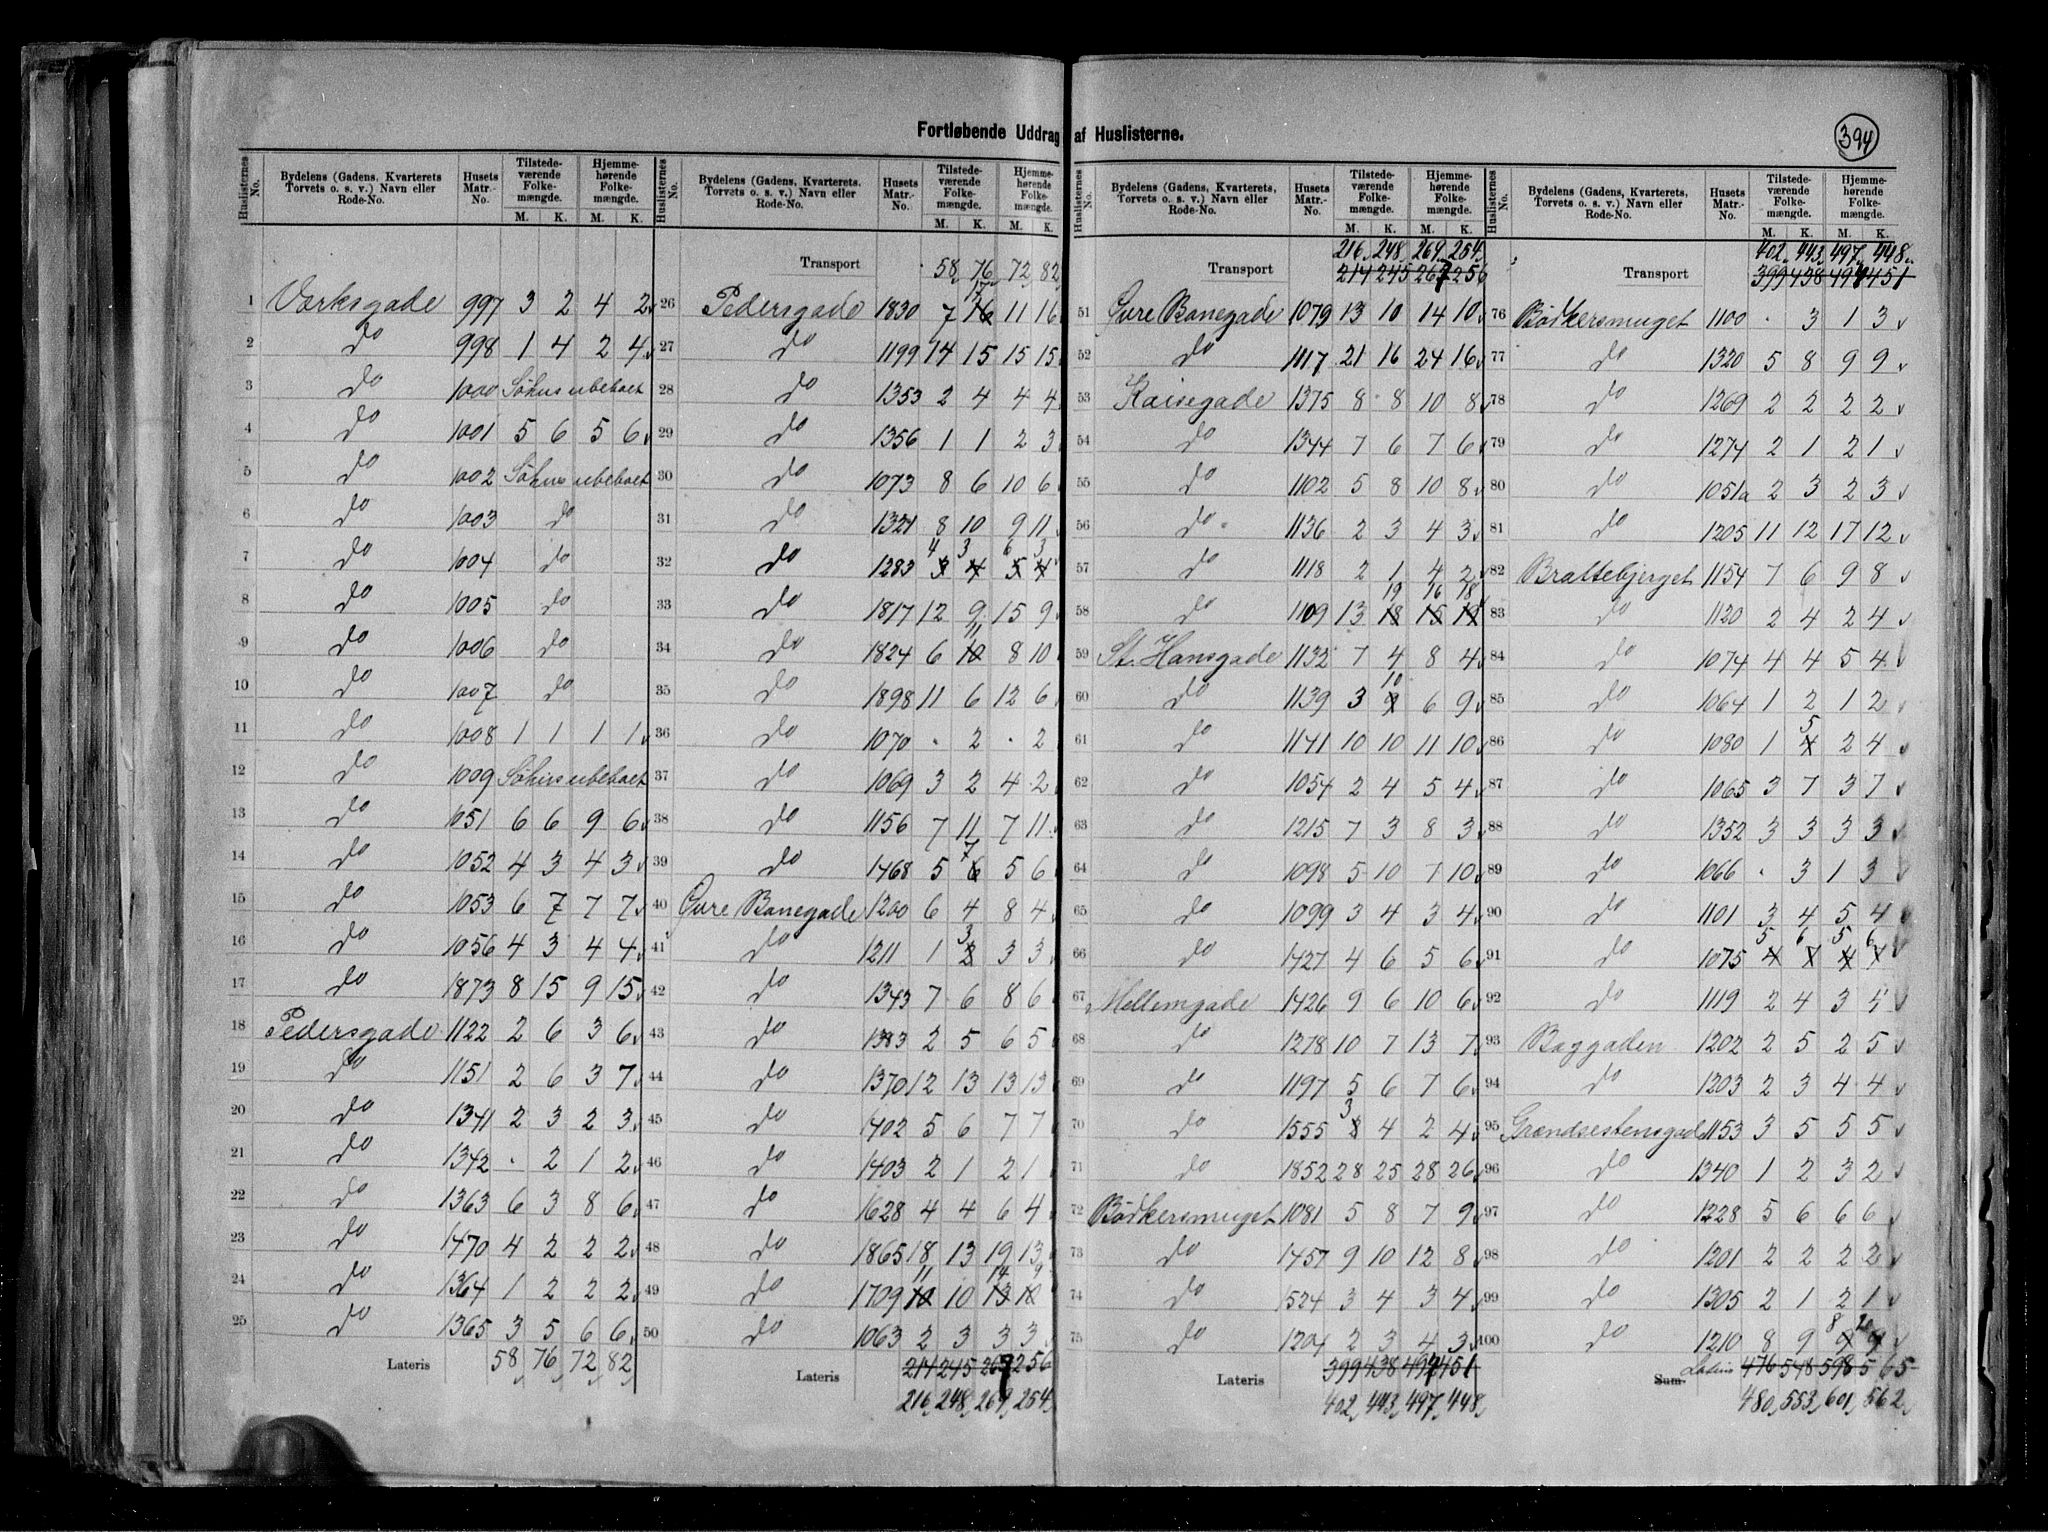 Fortløbende Uddrag af Huslisterne.
394
Huslisternes No. | Bydelens (Gadens, Kvarterets, Torvets o. s. v.) Navn eller Rode-No. | Husets Matr.-No. | Tilstedeværende Folkemængde. M. K. | Hjemmehørende Folkemængde. M. K.
1 Værksgade 997 3 2 4 2
2 do 998 1 4 2 4
3 do 1000 Söhus ubeboet
4 do 1001 5 6 5 6
5 do 1002 Söhus ubeboet
6 do 1003 do
7 do 1004 do
8 do 1005 do
9 do 1006 do
10 do 1007 do
11 do 1008 1 1 1 1
12 do 1009 Söhus ubeboet
13 do 1051 6 6 9 6
14 do 1052 4 3 4 3
15 do 1053 6 7 7 7
16 do 1056 4 3 4 4
17 do 1873 8 15 9 15
18 Pedersgade 1122 2 6 3 6
19 do 1151 2 6 3 7
20 do 1341 2 3 2 3
21 do 1342 . 2 1 2
22 do 1363 6 3 8 6
23 do 1470 4 2 2 2
24 do 1364 1 2 2 2
25 do 1365 3 5 6 6
Lateris 58 76 72 82
Huslisternes No. | Bydelens (Gadens, Kvarterets, Torvets o. s. v.) Navn eller Rode-No. | Husets Matr.-No. | Tilstedeværende Folkemængde. M. K. | Hjemmehørende Folkemængde. M. K.
Transport 58 76 72 82
26 Pedersgade 1830 7 16 17 11 16
27 do 1199 14 15 15 15
28 do 1353 2 4 4 4
29 do 1356 1 1 2 3
30 do 1073 8 6 10 6
31 do 1321 8 10 9 11
32 do 1283 3 4 4 3 5 6 4 3
33 do 1817 12 9 15 9
34 do 1824 6 10 11 8 10
35 do 1898 11 6 12 6
36 do 1070 . 2 . 2
37 do 1069 3 2 4 2
38 do 1156 7 11 7 11
39 do 1468 5 6 7 5 6
40 Övre Banegade 1200 6 4 8 4
41 do 1211 1 2 3 3 3
42 do 1343 7 6 8 6
43 do 1383 2 5 6 5
44 do 1370 12 13 13 13
45 do 1402 5 6 7 7
46 do 1403 2 1 2 1
47 do 1628 4 4 6 4
48 do 1865 18 13 19 13
49 do 1709 10 11 10 13 14 10 9
50 do 1063 2 3 3 3
Lateris 214 245 267 256
216 248 269 254
Huslisternes No. | Bydelens (Gadens, Kvarterets, Torvets o. s. v.) Navn eller Rode-No. | Husets Matr.-No. | Tilstedeværende Folkemængde. M. K. | Hjemmehørende Folkemængde. M. K.
216 248 269 254
Transport 214 245 267 256
51 Övre Banegade 1079 13 10 14 10
52 do 1117 21 16 24 16
53 Kaisegade 1375 8 8 10 8
54 do 1344 7 6 7 6
55 do 1102 5 8 10 8
56 do 1136 2 3 4 3
57 do 1118 2 1 4 2
58 do 1109 13 18 19 15 16 19 18
59 St. Hansgade 1132 7 4 8 4
60 do 1139 3 9 10 6 9
61 do 1141 10 10 11 10
62 do 1054 2 4 5 4
63 do 1215 7 3 8 3
64 do 1098 5 10 7 10
65 do 1099 3 4 3 4
66 do 1427 4 6 5 6
67 Mellemgade 1426 9 6 10 6
68 do 1278 10 7 13 7
69 do 1197 5 6 7 6
70 do 1555 2 3 4 2 4
71 do 1852 28 25 28 26
72 Bödkersmuget 1081 5 8 7 9
73 do 1457 9 10 12 8
74 do 1524 3 4 3 4
75 do 1204 2 3 4 3
Lateris 399 438 497 451
402 443 497 448
Huslisternes No. | Bydelens (Gadens, Kvarterets, Torvets o. s. v.) Navn eller Rode-No. | Husets Matr.-No. | Tilstedeværende Folkemængde. M. K. | Hjemmehørende Folkemængde. M. K.
402 443 497 448
Transport 399 438 497 451
76 Bödkersmuget 1100 . 3 1 3
77 do 1320 5 8 9 9
78 do 1269 2 2 2 2
79 do 1274 2 1 2 1
80 do 1051a 2 3 2 3
81 do 1205 11 12 17 12
82 Brattebjerget 1154 7 6 9 8
83 do 1120 2 4 2 4
84 do 1074 4 4 5 4
85 do 1064 1 2 1 2
86 do 1080 1 4 5 2 4
87 do 1065 3 7 3 7
88 do 1352 3 3 3 3
89 do 1066 . 3 1 3
90 do 1101 3 4 5 4
91 do 1075 4 5 7 6 4 5 7 6
92 do 1119 2 4 3 4
93 Baggaden 1202 2 5 2 5
94 do 1203 2 3 4 4
95 Grændsestensgad 1153 3 5 5 5
96 do 1340 1 2 3 2
97 do 1228 5 6 6 6
98 do 1201 2 2 2 2
99 do 1305 2 1 2 1
100 do 1210 8 9 9 8 9 10
Sum Lateris 476 548 598 565
480 553 601 562